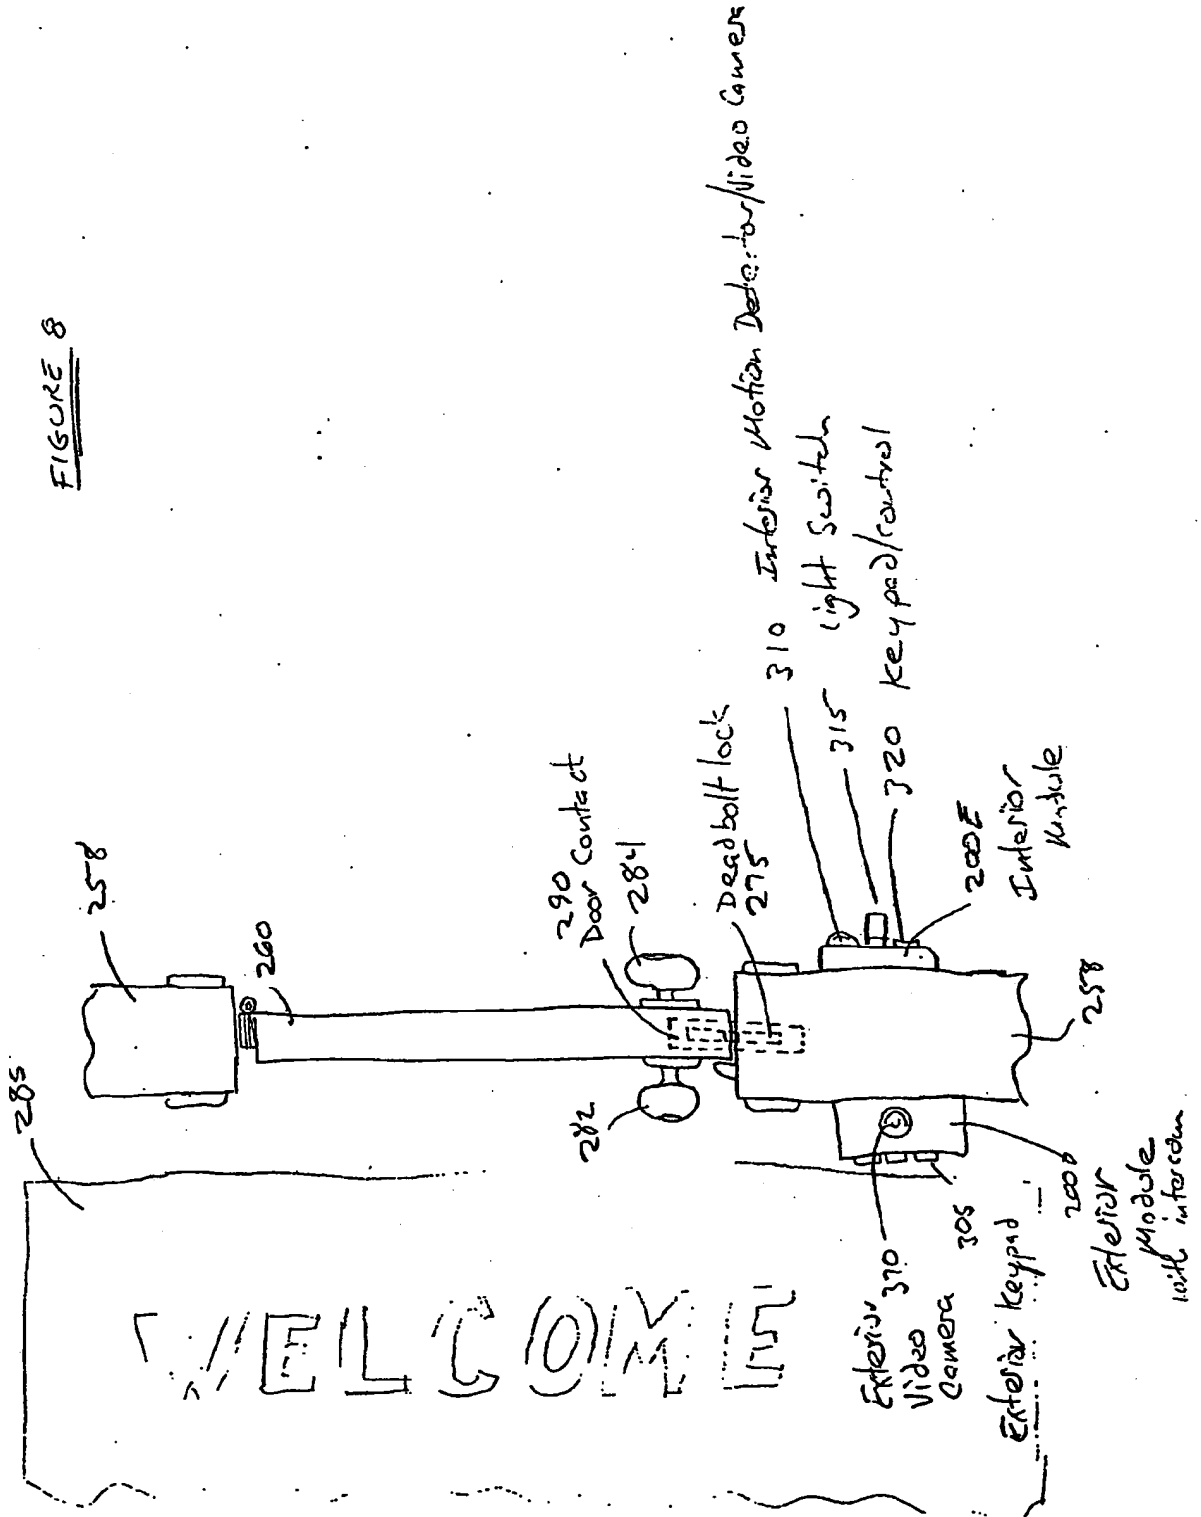 FIGURE 8
285
258
260
290
Door Contact
284
282
Deadbolt lock
275
310 Interior Motion Detector/Video Camera
315 Light Switch
320 Keypad/control
200E
Interior
Module
258
WELCOME
Exterior 370
Video
Camera
305
Exterior Keypad
200D
Exterior
Module
with intercom